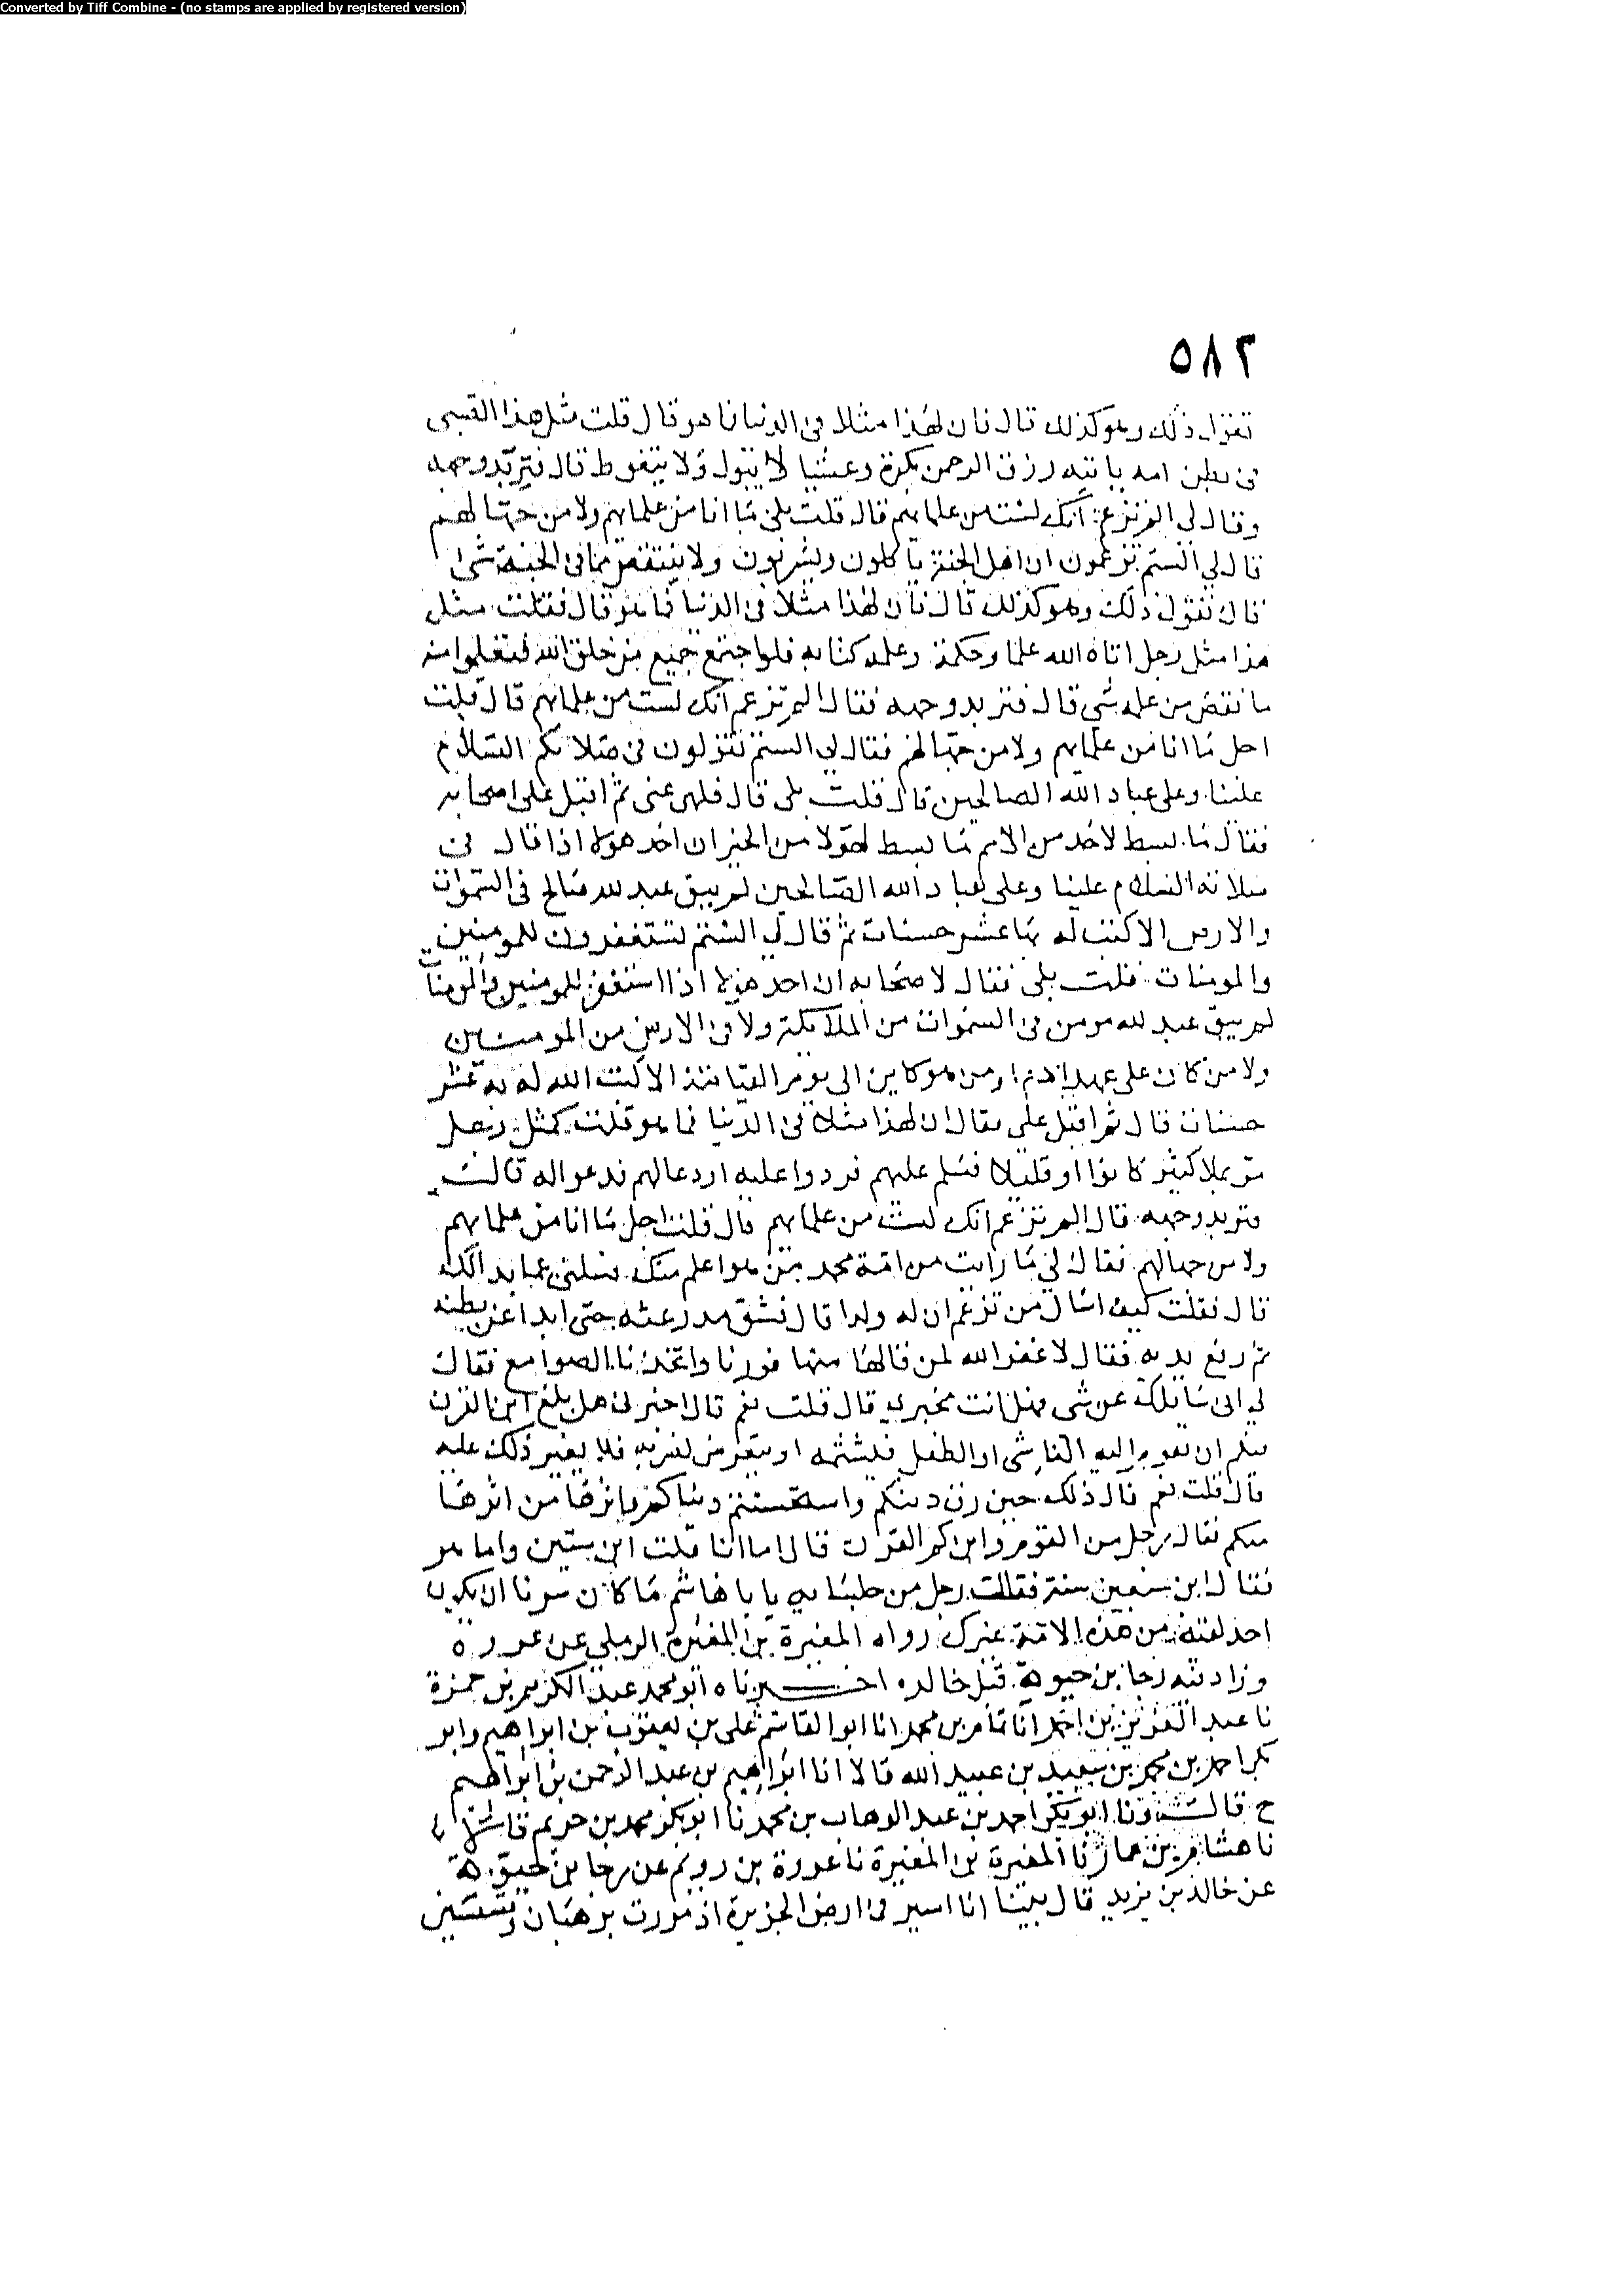 Converted by Tiff Combine - (no stamps are applied by registered version)
٥٨٢
نقول ذلك وهو كذلك قال فان لهذا مثلا في الدنيا فما هو قال قلت مثل هذا الصبي
في بطن امه ياتيه رزق الرحمن بكرة وعشيا لا يبول ولا يتغوط قال فتربد وجهه
وقال لي الم تزعم انك لست من علمايهم قال قلت بلى ما انا من علمايهم ولا من جهالهم
قال لي الستم تزعمون ان اهل الجنة ياكلون ويشربون ولا ينتقص مما في الجنة شي
قال نقول ذلك وهو كذلك قال فان لهذا مثلا في الدنيا فما هو قال فقلت مثل
هذا مثل رجل اتاه الله علما وحكمة وعلمه كتابه فلو اجتمع جميع من خلق الله فتعلموا منه
ما نقص من علمه شي قال فتربد وجهه فقال الم تزعم انك لست من علمايهم قال قلت
اجل ما انا من علمايهم ولا من جهالهم فقال لي الستم تقولون في صلاتكم السلام
علينا وعلى عباد الله الصالحين قال قلت بلى قال فلهى عني ثم اقبل على اصحابه
فقال ما بسط لاحد من الامم ما بسط لهولا من الخير ان احد هولا اذا قال في
صلاته السلام علينا وعلى عباد الله الصالحين لم يبق عبد لله صالح في السموات
والارض الا كتب له بها عشر حسنات ثم قال لي الستم تستغفرون للمومنين
والمومنات قلت بلى فقال لاصحابه ان احد هولا اذا استغفر للمومنين والمومنات
لم يبق عبد لله مومن في السموات من الملايكة ولا في الارض من المومنين
ولا من كان على عهد ادم او من هو كاين الى يوم القيامة الا كتب الله له به عشر
حسنات قال ثم اقبل علي فقال ان لهذا مثلا في الدنيا فما هو قلت كمثل رجل
مر بملا كثير كانوا او قليلا فسلم عليهم فردوا عليه او دعا لهم فدعوا له قال
فتربد وجهه قال الم تزعم انك لست من علمايهم قال قلت اجل ما انا من علمايهم
ولا من جهالهم فقال لي ما رايت من امة محمد من هو اعلم منك سلني عما بدا لك
قال فقلت كيف اسال من تزعم ان له ولدا قال فشق مدرعته حتى ابدا عن بطنه
ثم رفع يديه فقال لا غفر الله لمن قالها منها فررنا واتخذنا الصوامع فقال
لي اني سايلك عن شي فهل انت مخبري قال قلت نعم قال اخبرني هل بلغ ابن القرن
فيكم ان يقوم اليه الناشي او الطفل فيشتمه او يتعرض لضربه فلا يغير ذلك عليه
قال قلت نعم قال ذلك حين رق دينكم واستحسنتم دنياكم واثرها من اثرها
منكم فقال رجل من القوم وابن كم القرن قال اما انا قلت ابن ستين واما هو
فقال ابن سبعين سنة فقال رجل من جلسايه يا با هاشم ما كان سرنا ان يكون
احد لقيه من هذه الامة غيرك رواه المغيرة بن المغيرة الرملي عن عروة
وزاد فيه رجا بن حيوة قبل خالد اخبرناه ابو محمد عبد الكريم بن حمزة
نا عبد العزيز بن احمد انا تمام بن محمد انا ابو القاسم علي بن يعقوب بن ابراهيم وابو
بكر احمد بن محمد بن سعيد بن عبيد الله قالا انا ابراهيم بن عبد الرحمن بن ابراهيم
ح قال ونا ابو بكر احمد بن عبد الوهاب بن محمد نا ابو بكر محمد بن خريم قالا
نا هشام بن عمار نا المغيرة بن المغيرة نا عروة بن رويم عن رجا بن حيوة
عن خالد بن يزيد قال بينا انا اسير في ارض الجزيرة اذ مررت برهبان وقسيسين